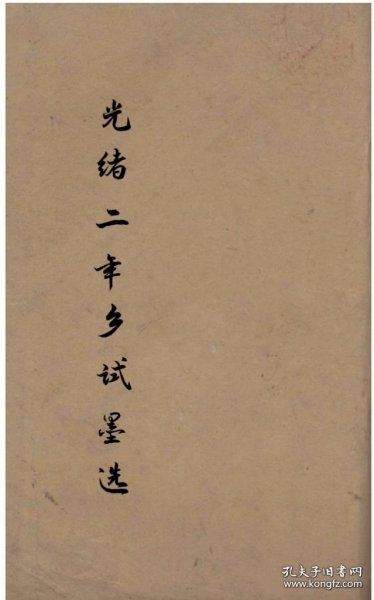 光绪二年乡试墨选
孔夫子旧书网
www.kongfz.com